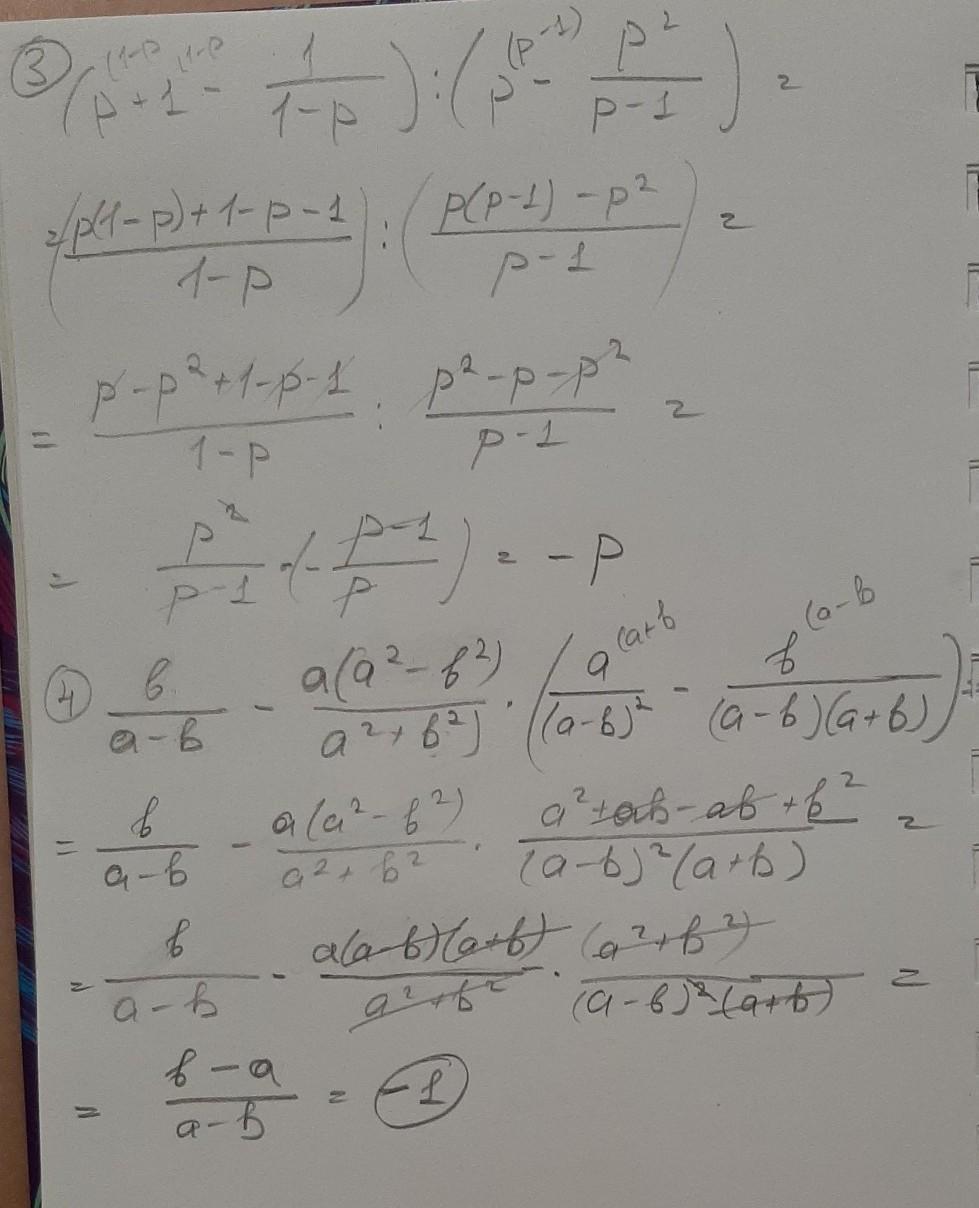 ③ (p^{(1-p} + 1^{(1-p} - \frac{1}{1-p}) : (p^{(p-1)} - \frac{p^2}{p-1}) =
= (\frac{p(1-p)+1-p-1}{1-p}) : (\frac{p(p-1)-p^2}{p-1}) =
= \frac{p-p^2+1-p-1}{1-p} : \frac{p^2-p-p^2}{p-1} =
= \frac{p^2}{p-1} · (-\frac{p-1}{p}) = -p
④ \frac{b}{a-b} - \frac{a(a^2-b^2)}{a^2+b^2)} · (\frac{a^{(a+b}}{(a-b)^2} - \frac{b^{(a-b}}{(a-b)(a+b)}) =
= \frac{b}{a-b} - \frac{a(a^2-b^2)}{a^2+b^2} · \frac{a^2+ab-ab+b^2}{(a-b)^2(a+b)} =
= \frac{b}{a-b} - \frac{a(a-b)(a+b)}{a^2+b^2} · \frac{(a^2+b^2)}{(a-b)^2(a+b)} =
= \frac{b-a}{a-b} = -1